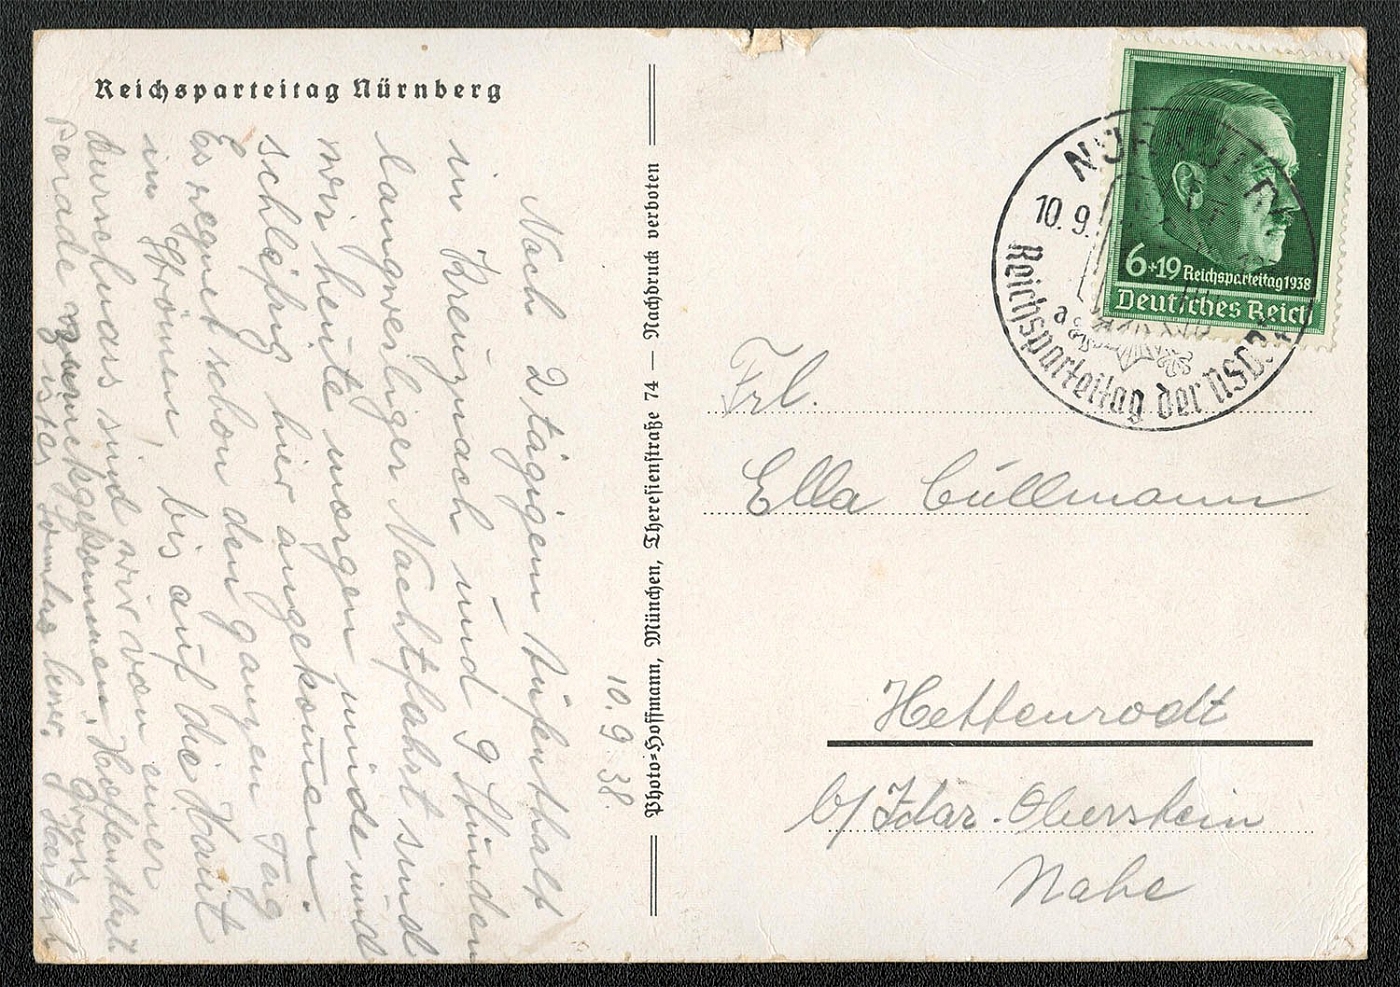 Reichsparteitag Nürnberg
10.9.38.
Nach 2 tägigem Aufenthalt
in Kreuznach und 9 stünden
langweiliger Nachtfahrt sind
wir heute morgen müde und
schläfrig hier angekommen
Es regnet schon den ganzen Tag
in Strömen, bis auf die Haut
durchnass sind wir von einer
Parade zurückgekommen. Hoffentlich
ist es Sonntag besser. Gruss
Herbert
Photo-Hoffmann, München, Theresienstraße 74 — Nachdruck verboten
6+19 Reichsparteitag 1938
Deutsches Reich
NÜRNBERG
10.9.
a
Reichsparteitag der NSDAP
Frl.
Ella Cullmann
Hettenrodt
b/ Idar-Oberstein
Nahe